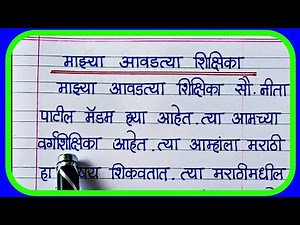 माझ्या आवडत्या शिक्षिका
माझ्या आवडत्या शिक्षिका सौ. नीता
पाटील मॅडम ह्या आहेत. त्या आमच्या
वर्गशिक्षिका आहेत. त्या आम्हांला मराठी
हा शिकवतात. त्या मराठीमधील